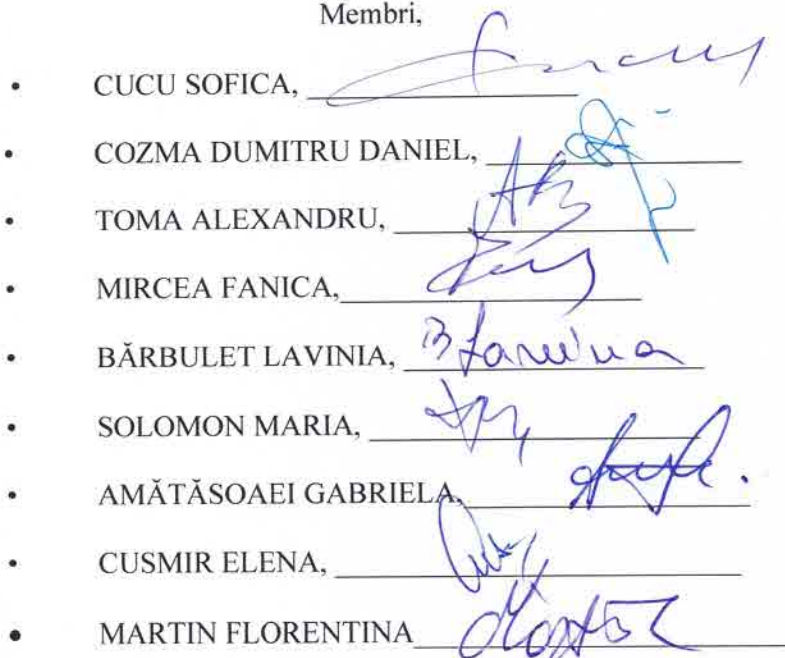 Membri,
• CUCU SOFICA,
• COZMA DUMITRU DANIEL,
• TOMA ALEXANDRU,
• MIRCEA FANICA,
• BĂRBULET LAVINIA, B Lavinia
• SOLOMON MARIA,
• AMĂTĂSOAEI GABRIELA,
• CUSMIR ELENA,
• MARTIN FLORENTINA